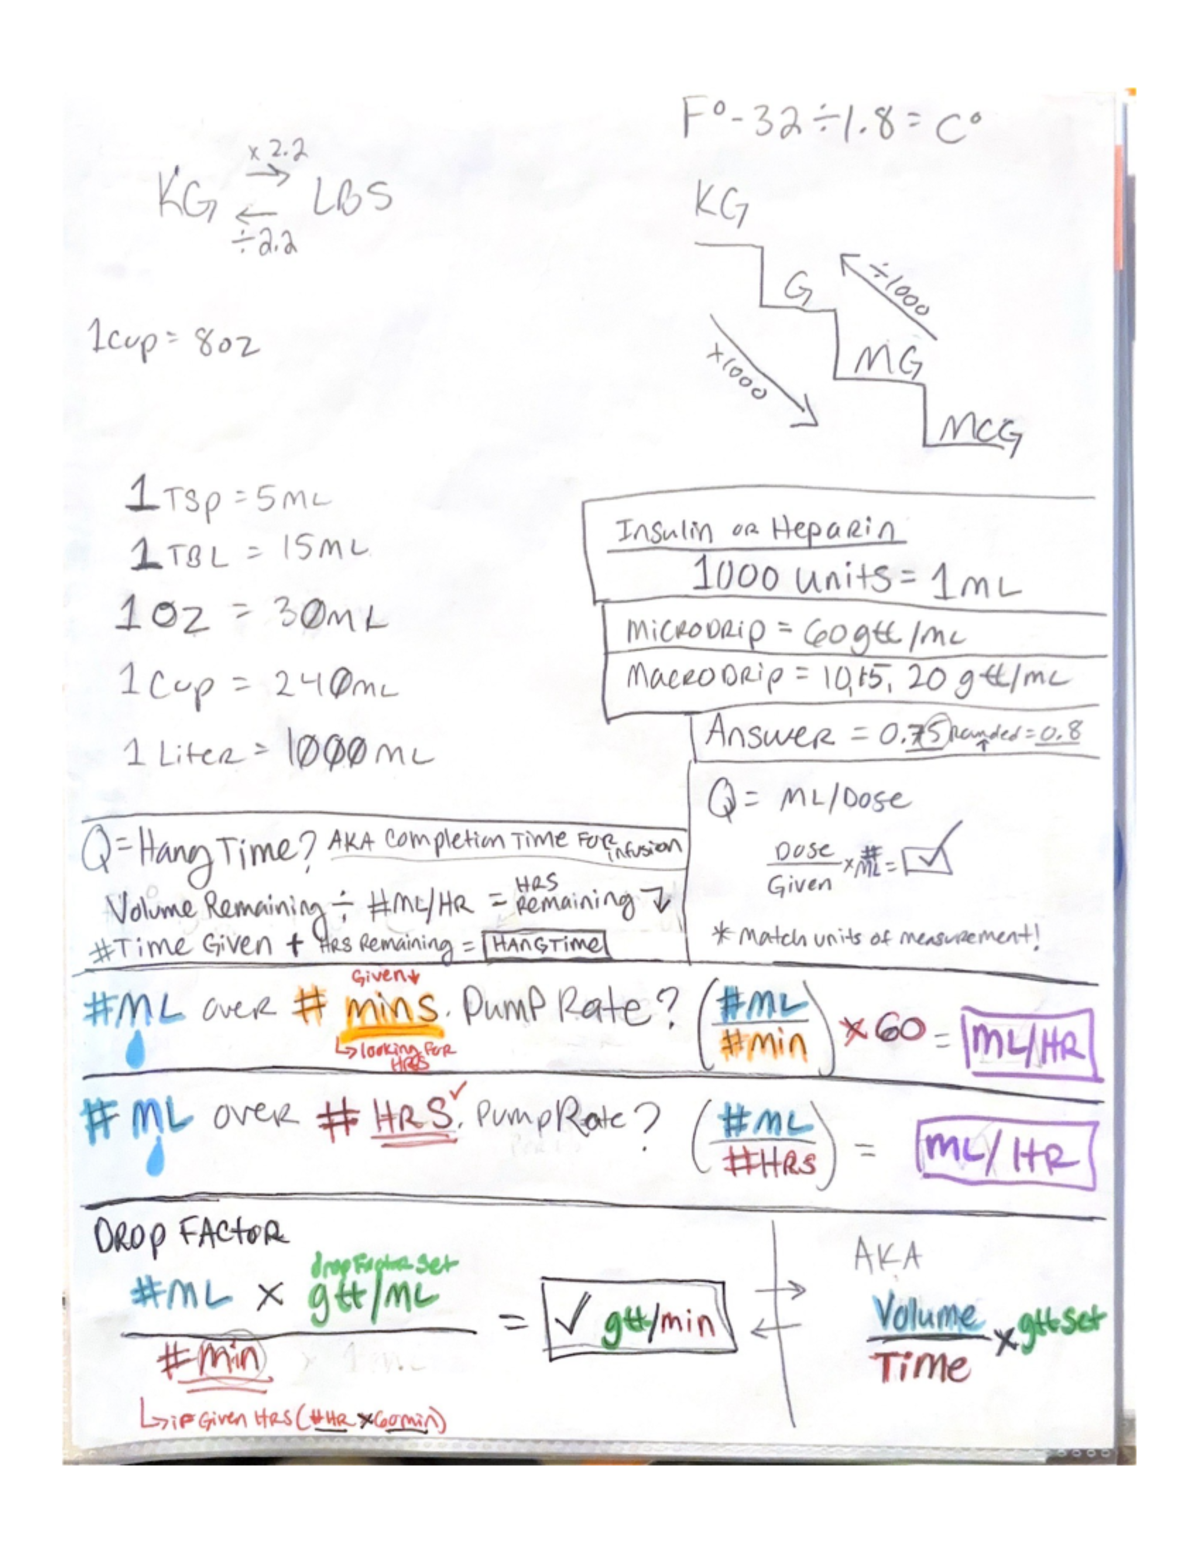 F° - 32 ÷ 1.8 = C°
x 2.2
KG LBS
÷2.2
KG
G
÷1000
MG
x1000
MCG
1Cup = 8oz
1 TSp = 5ML
1 TBL = 15ML
1 OZ = 30ML
1 Cup = 240mL
1 Liter = 1000 ML
Insulin or Heparin
1000 units = 1mL
MiCRODRip = 60gtt/mL
MacroDrip = 10,15, 20 gtt/mL
Answer = 0.75 = 0.8
Q = ML/Dose
Dose
Given
x # ML = ✓
* Match units of measurement!
Q = Hang Time? AKA Completion Time For infusion
Volume Remaining ÷ #ML/HR = HRS Remaining
#Time Given + Hrs Remaining = HANGTIME
Given
#ML over # mins. Pump Rate? (#ML / #min) x 60 = ML/HR
looking For HRS
# ML over # HRS. Pump Rate? (#ML / #HRS) = ML/HR
DROP FACTOR
dropFactor Set
#ML x gtt/ML
#min
= ✓ gtt/min
if Given HRS (#HR x 60min)
AKA
Volume
Time
x gtt set